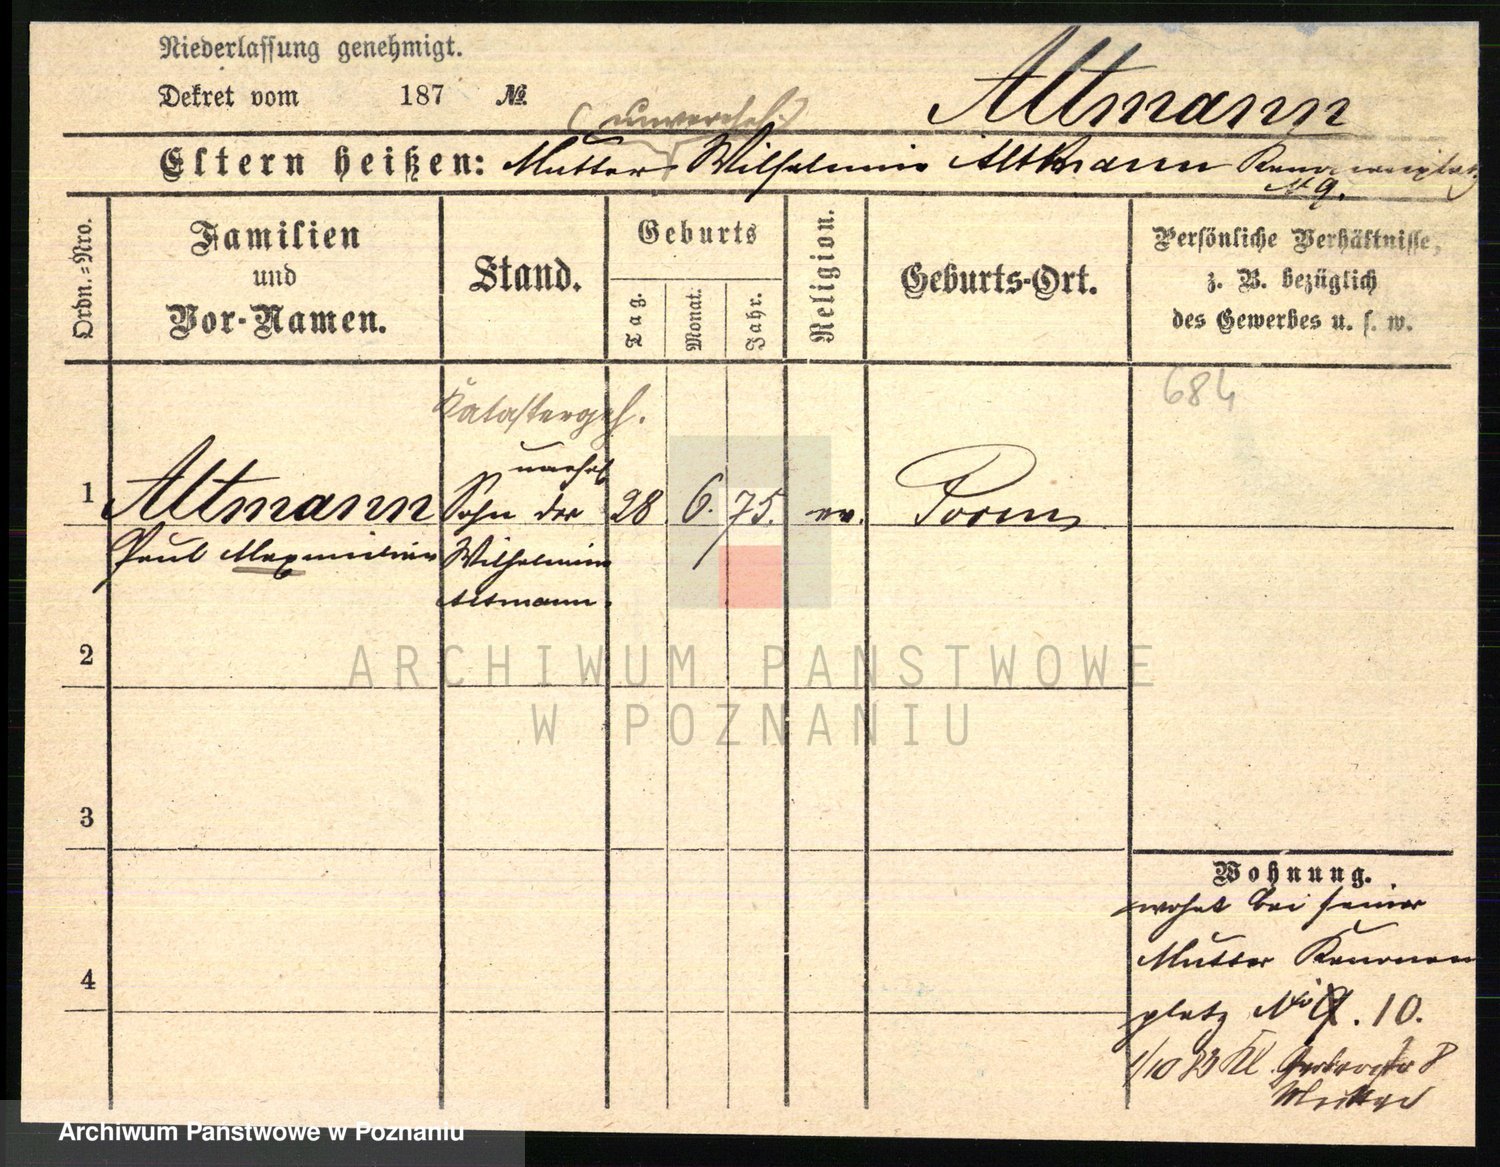 Niederlassung genehmigt.
Dekret vom 187 No
Altmann
(unverehel.)
Eltern heißen: Mutter Wilhelmine Altmann Kanonenplatz
No 9.
Ordn.=Nro.
Familien
und
Vor-Namen.
Stand.
Geburts
Tag.
Monat.
Jahr.
Religion.
Geburts-Ort.
Persönliche Verhältnisse,
z. B. bezüglich
des Gewerbes u. s. w.
684
Katastergeh.
unehel
1 Altmann Sohn der 28 6. 75. ev. Posen
Paul Maximilian Wilhelmine
Altmann.
2
ARCHIWUM PAŃSTWOWE
W POZNANIU
3
Wohnung.
wohnt bei seiner
Mutter Kanonen
4
platz No 9. 10.
1/10 83 Kl. Gerberstr 8
Mutter
Archiwum Państwowe w Poznaniu